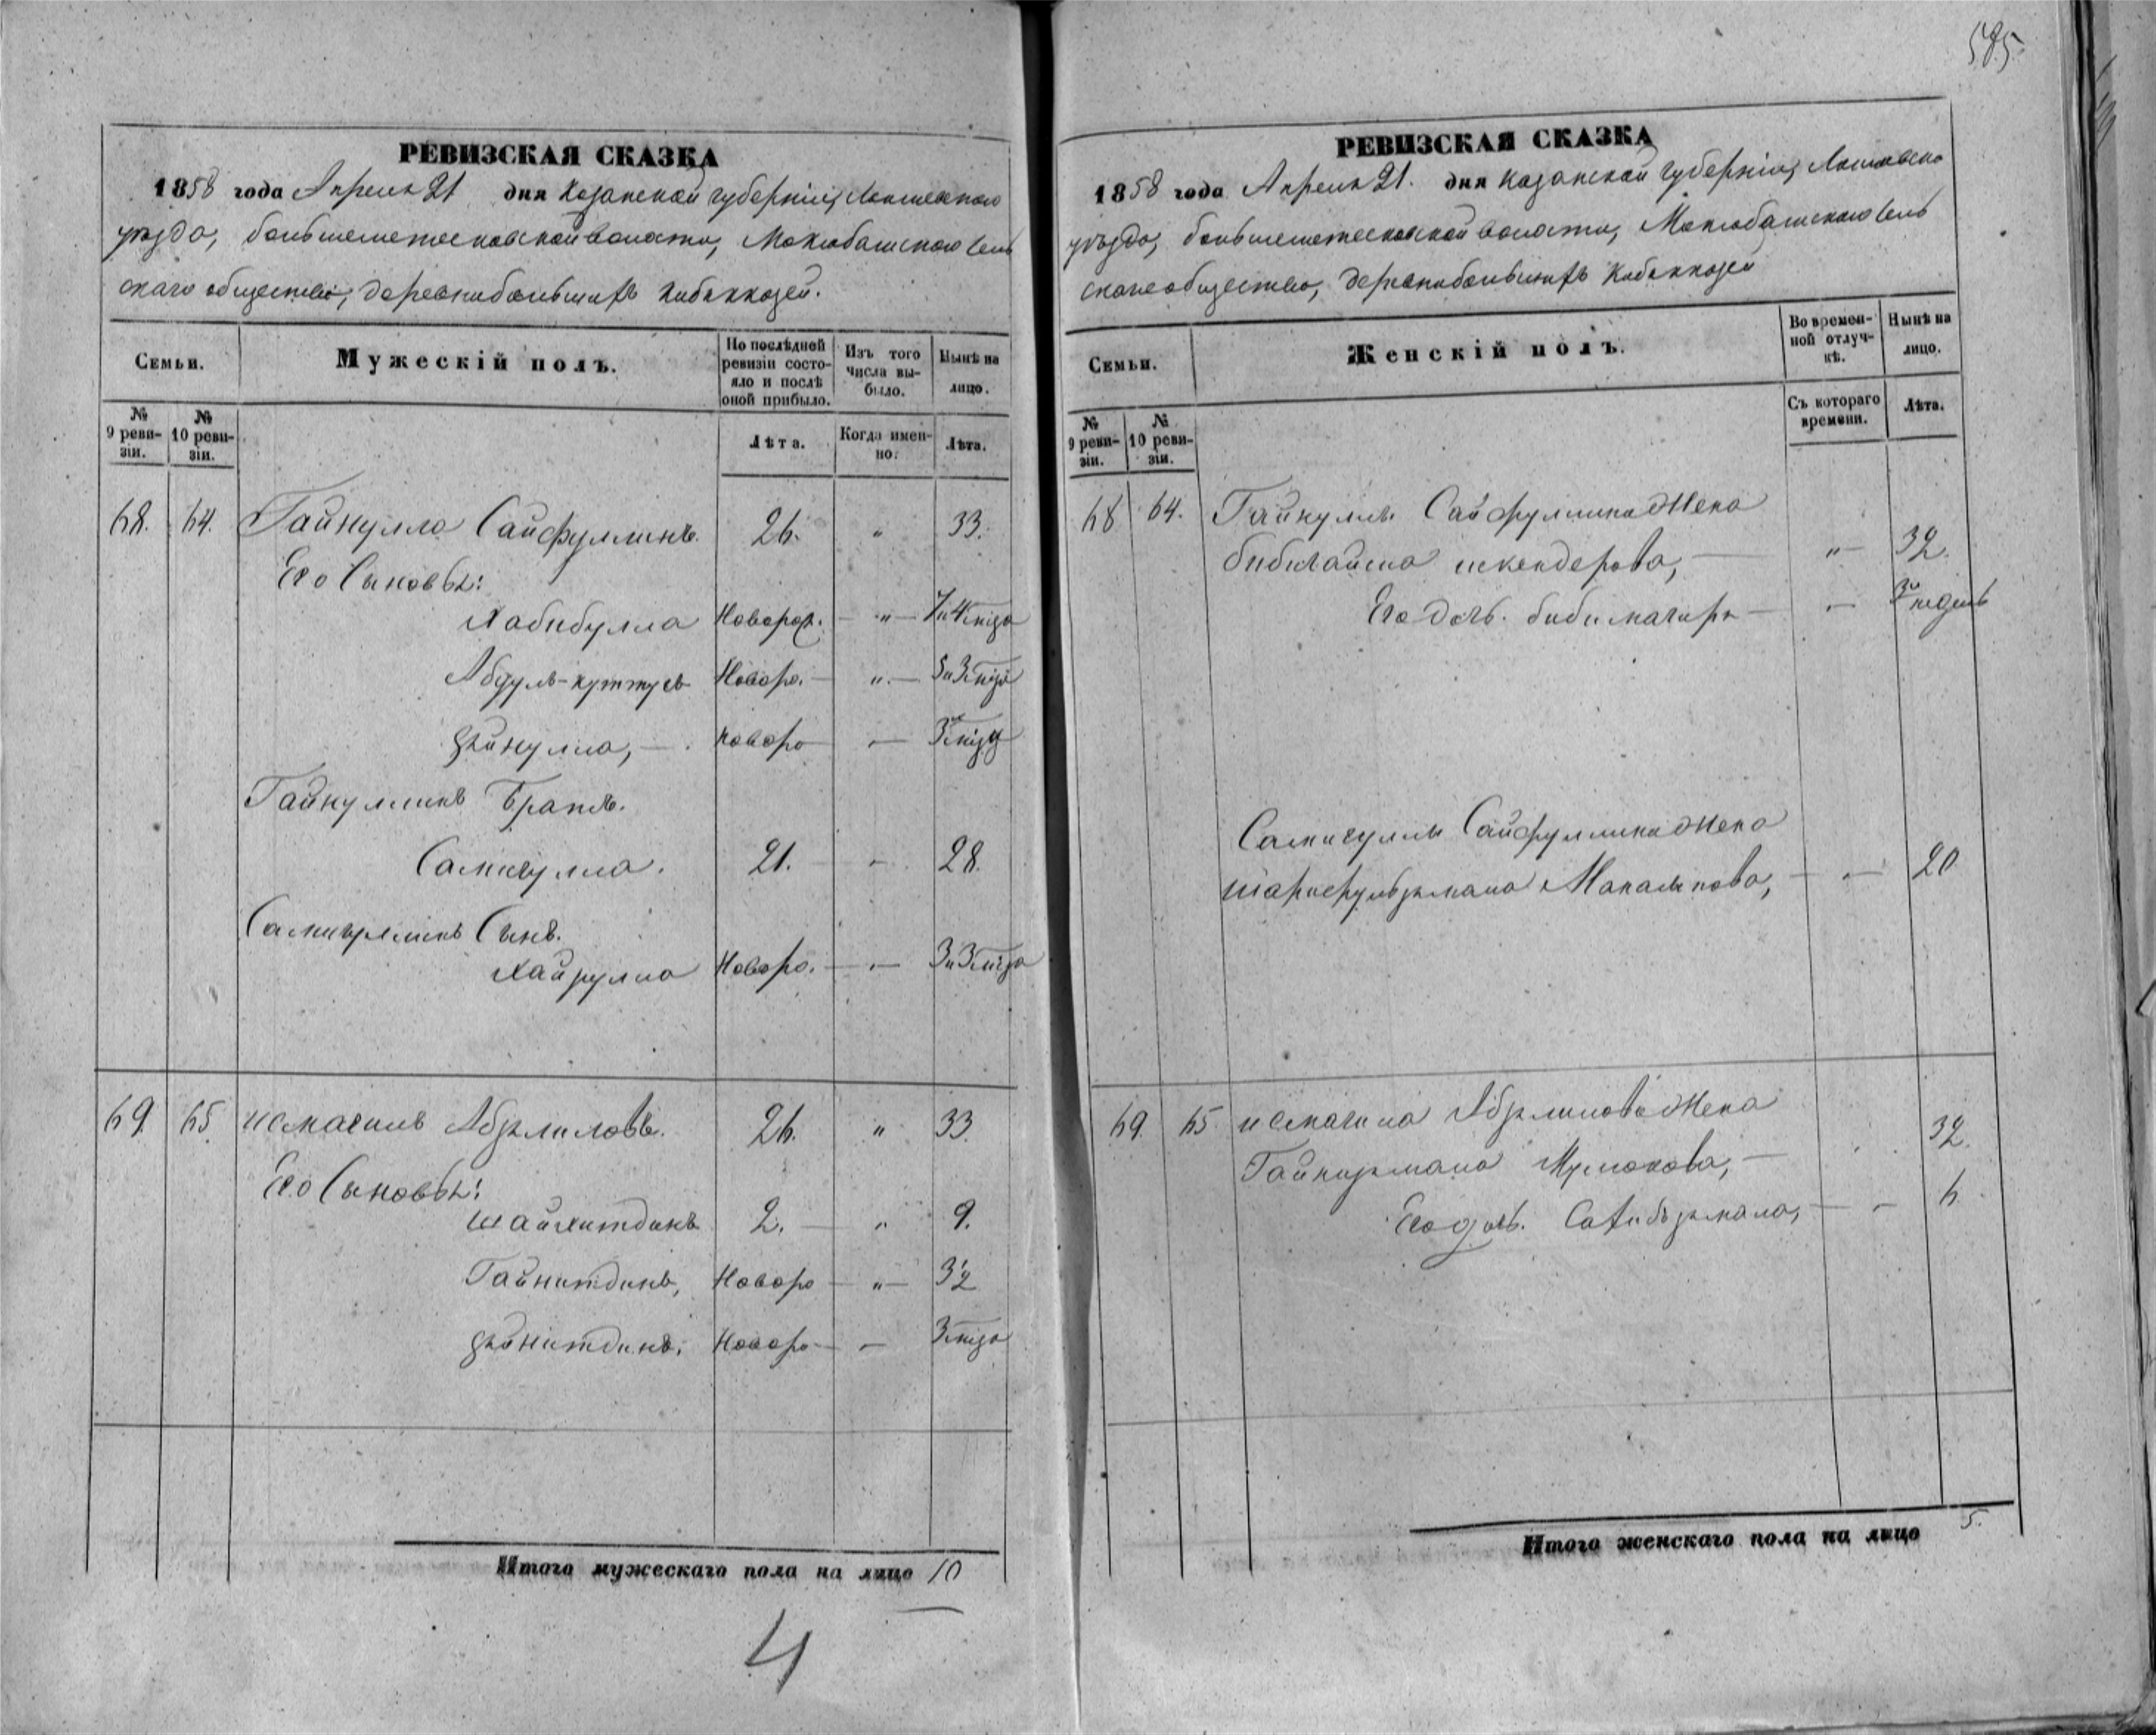 585.
РЕВИЗСКАЯ СКАЗКА
1858 года Апреля 21 дня Казанской губернии, Лаишевского
уезда, большеметесковской волости, Моклобашского сель
скаго общества, деревни большихъ Кибякозей.
Семьи.
Мужескій полъ.
По послѣдней ревизіи состояло и послѣ оной прибыло.
Изъ того числа выбыло.
Нынѣ на лицо.
№ 9 ревизіи.
№ 10 ревизіи.
Лѣта.
Когда именно.
Лѣта.
68. 64. Гайнулла Сайфуллинъ. 26. " 33.
Его Сыновья:
Хабибулла Новорож. — " — 7 и 4 міца
Абдулъ-куттусъ Новоро. — " — 5 и 3 міца
зяйнулла, — . новоро — — 3 міца
Гайнуллинъ Братъ.
Самигулла. 21. - 28.
Самигуллинъ Сынъ.
Хайрулла Новоро. — — 3 и 3 міца
69. 65. исмагилъ Абзялиловъ. 26. " 33.
Его Сыновья:
шайхитдинъ 2. — " 9.
Гайнитдинъ, Новоро — " — 3 1/2
зяйнитдинъ, Новоро — — 3 міца
Итого мужескаго пола на лицо 10
4
РЕВИЗСКАЯ СКАЗКА
1858 года Апреля 21. дня казанской губернии, Лаишевско
уезда, большеметесковской волости, Моклобашского сель
скаго общества, деревни большихъ Кибякозей
Семьи.
Женскій полъ.
Во временной отлучкѣ.
Нынѣ на лицо.
№ 9 ревизіи.
№ 10 ревизіи.
Съ котораго времени.
Лѣта.
68 64. Гайнуллы Сайфуллина Жена
бибигайша искендерова, — " — 32.
Его дочь. биби магира — — 3 недель
Самигуллы Сайфуллина Жена
шарифульзямала Маналыпова, — — 20
69. 65. исмагила Абзялилова Жена
Гайнизямала Муслюкова, — 32.
Его дочь. Сахибзямала, — - 6
Итого женскаго пола на лицо 5.